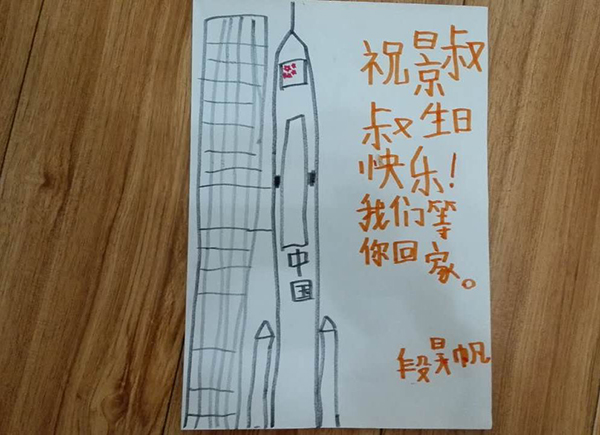 祝景叔
叔生日
快乐!
我们等
你回家。
段昊帆
中国